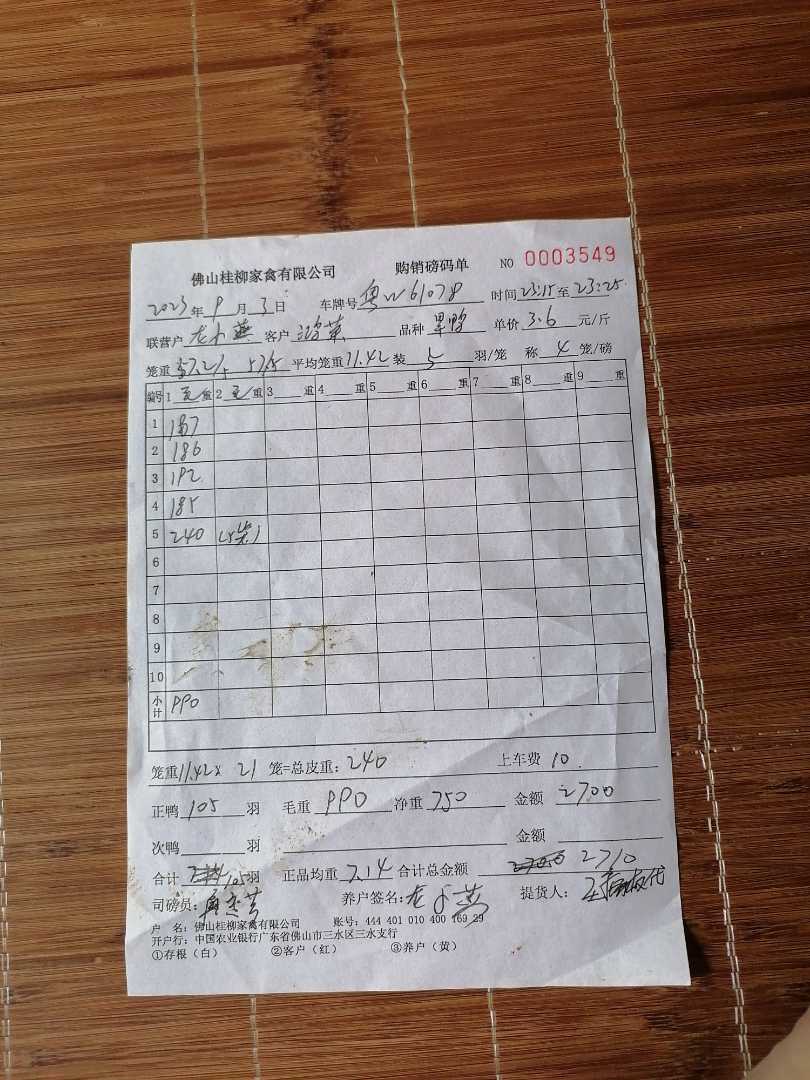 佛山桂柳家禽有限公司 购销磅码单 NO 0003549
2023年9月3日 车牌号 粤W61078 时间 23:15至23:25
联营户 客户 鸿英 品种 单价 3.6 元/斤
笼重 57.5 平均笼重 11.42 装 5 羽/笼 称 4 笼/磅
编号 1 毛重 2 毛重 3 重 4 重 5 重 6 重 7 重 8 重 9 重
1 187
2 186
3 192
4 185
5 240
6
7
8
9
10
小计 990
笼重11.42x 21 笼=总皮重:240 上车费 10
正鸭 105 羽 毛重 990 净重 750 金额 2700
次鸭 羽 金额
合计 105羽 正品均重 7.14 合计总金额 2710
司磅员: 养户签名: 提货人:
户 名: 佛山桂柳家禽有限公司 账号: 444 401 010 400 169 29
开户行: 中国农业银行广东省佛山市三水区三水支行
①存根(白) ②客户(红) ③养户(黄)